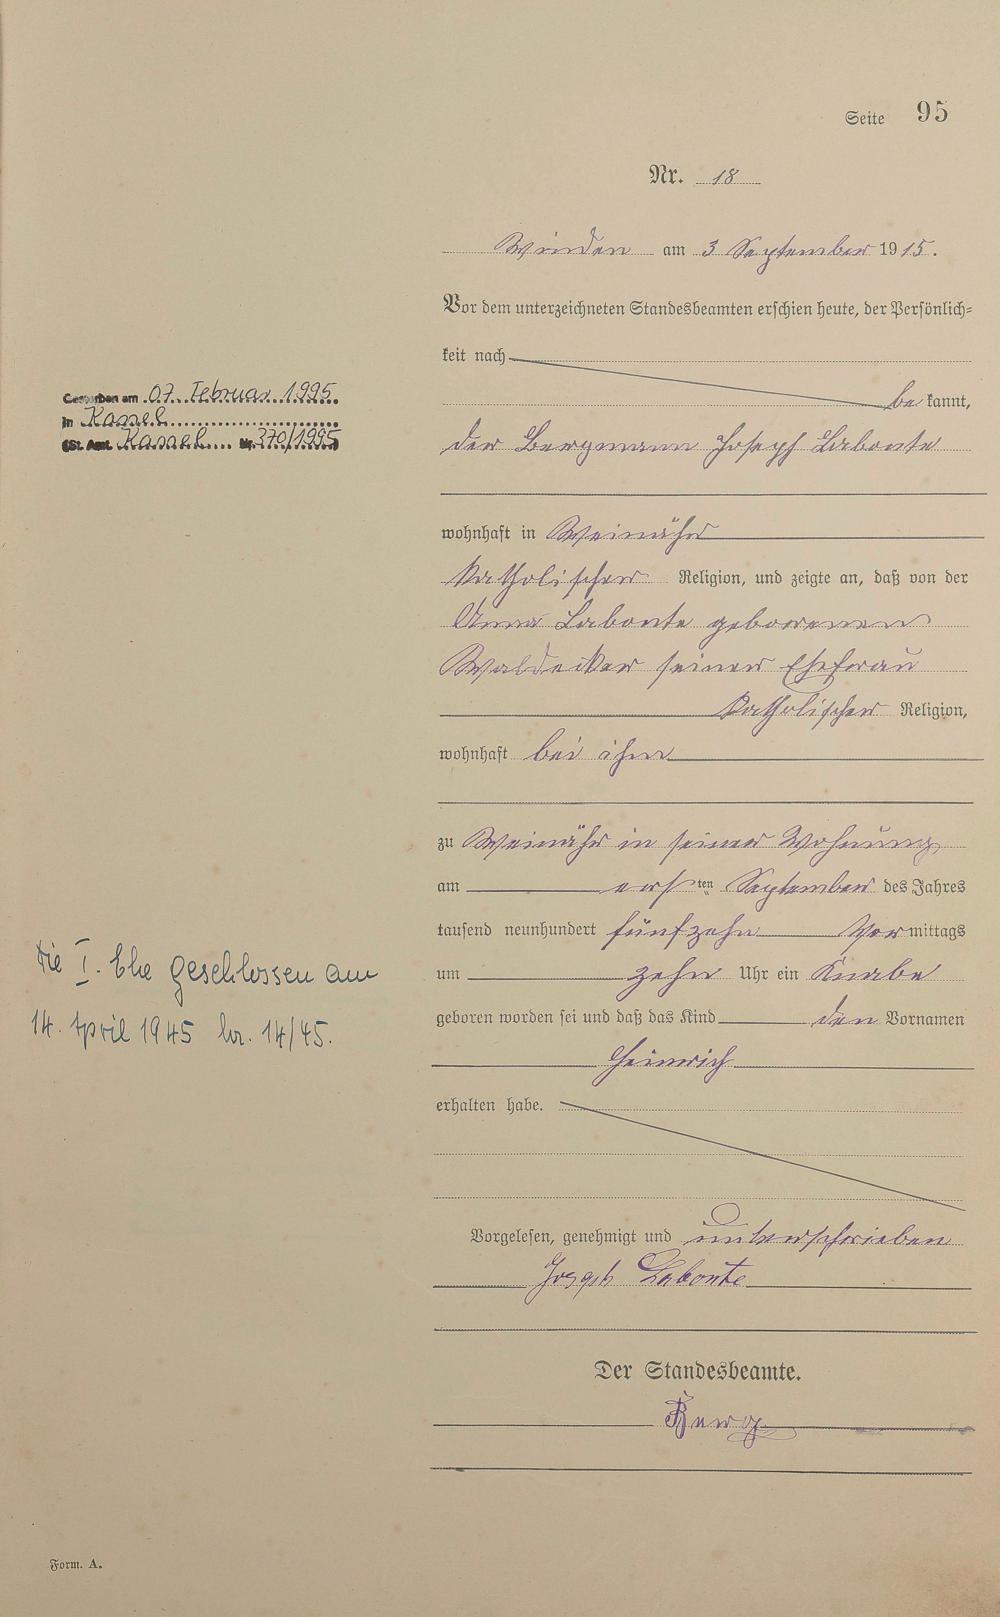 Seite 95
Nr. 18
Winden am 3 September 1915.
Vor dem unterzeichneten Standesbeamten erschien heute, der Persönlich-
keit nach
be kannt,
der Bergmann Joseph Labonte
wohnhaft in Weinähr
katholischer Religion, und zeigte an, daß von der
Anna Labonte geborenen
Waldecker seiner Ehefrau
katholischer Religion,
wohnhaft bei ihm
zu Weinähr in seiner Wohnung
am ersten September des Jahres
tausend neunhundert fünfzehn Vormittags
um zehn Uhr ein Knabe
geboren worden sei und daß das Kind den Vornamen
Heinrich
erhalten habe.
Vorgelesen, genehmigt und unterschrieben
Joseph Labonte
Der Standesbeamte.
Gestorben am 07. Februar 1995
in Kassel
(St. Amt. Kassel Nr. 370/1995)
Die I. Ehe geschlossen am
14. April 1945 Nr. 14/45.
Form. A.